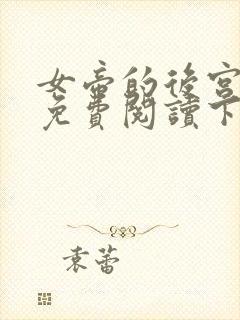 女帝的後宮
免費閱讀下
袁蕾